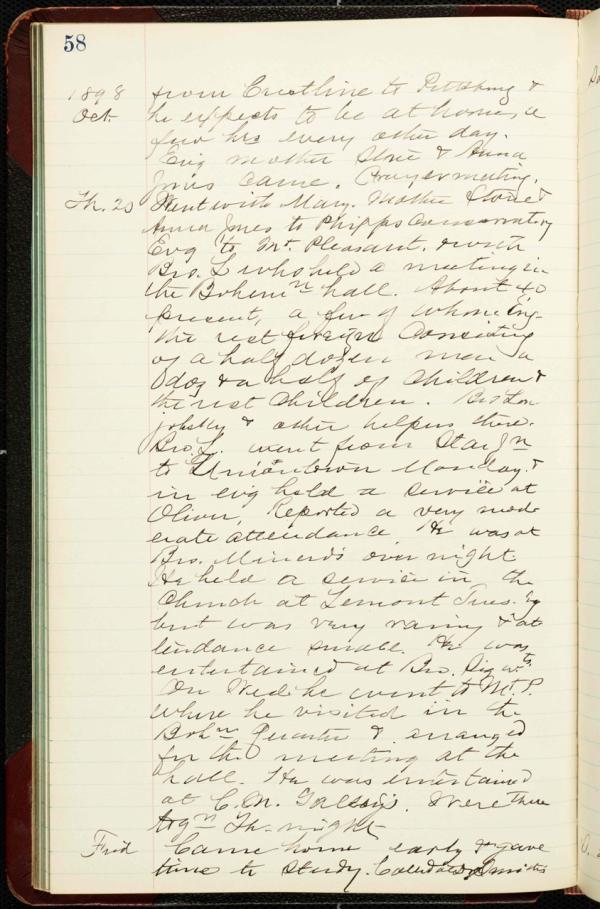 58
1898 from Crestline to Pittsburg &
Oct. he expects to be at home, a
few hrs every other day.
Evg mother Stone & Anna
Jones came. Prayermeeting.
Th. 20 Went with Mary. Mother Stone &
Anna Jones to Phipps Conservatory
Evg to Mt. Pleasant. with
Bro. L who held a meeting in
the Bohemn hall. About 40
present, a few of whom Eng-
the rest foreign Consisting
of a half dozen men a
doz & a half of children &
the rest children. Bro
& other helpers there.
Bro. L. went from Star Jn
to Uniontown Monday &
in evg held a service at
Oliver, Reported a very mod-
erate attendance. He was at
Bro. Minerd's over night
He held a service in the
Church at Lemont Tues. Eg
but was very rainy & at-
tendance small. He was
entertained at Bro.
On Wed he went to Mt. P.
where he visited in the
Bohmn Quarter & arranged
for the meeting at the
hall. He was entertained
at C. M. Were there
togr Th. night
Frid Came home early & gave
time to study. Called